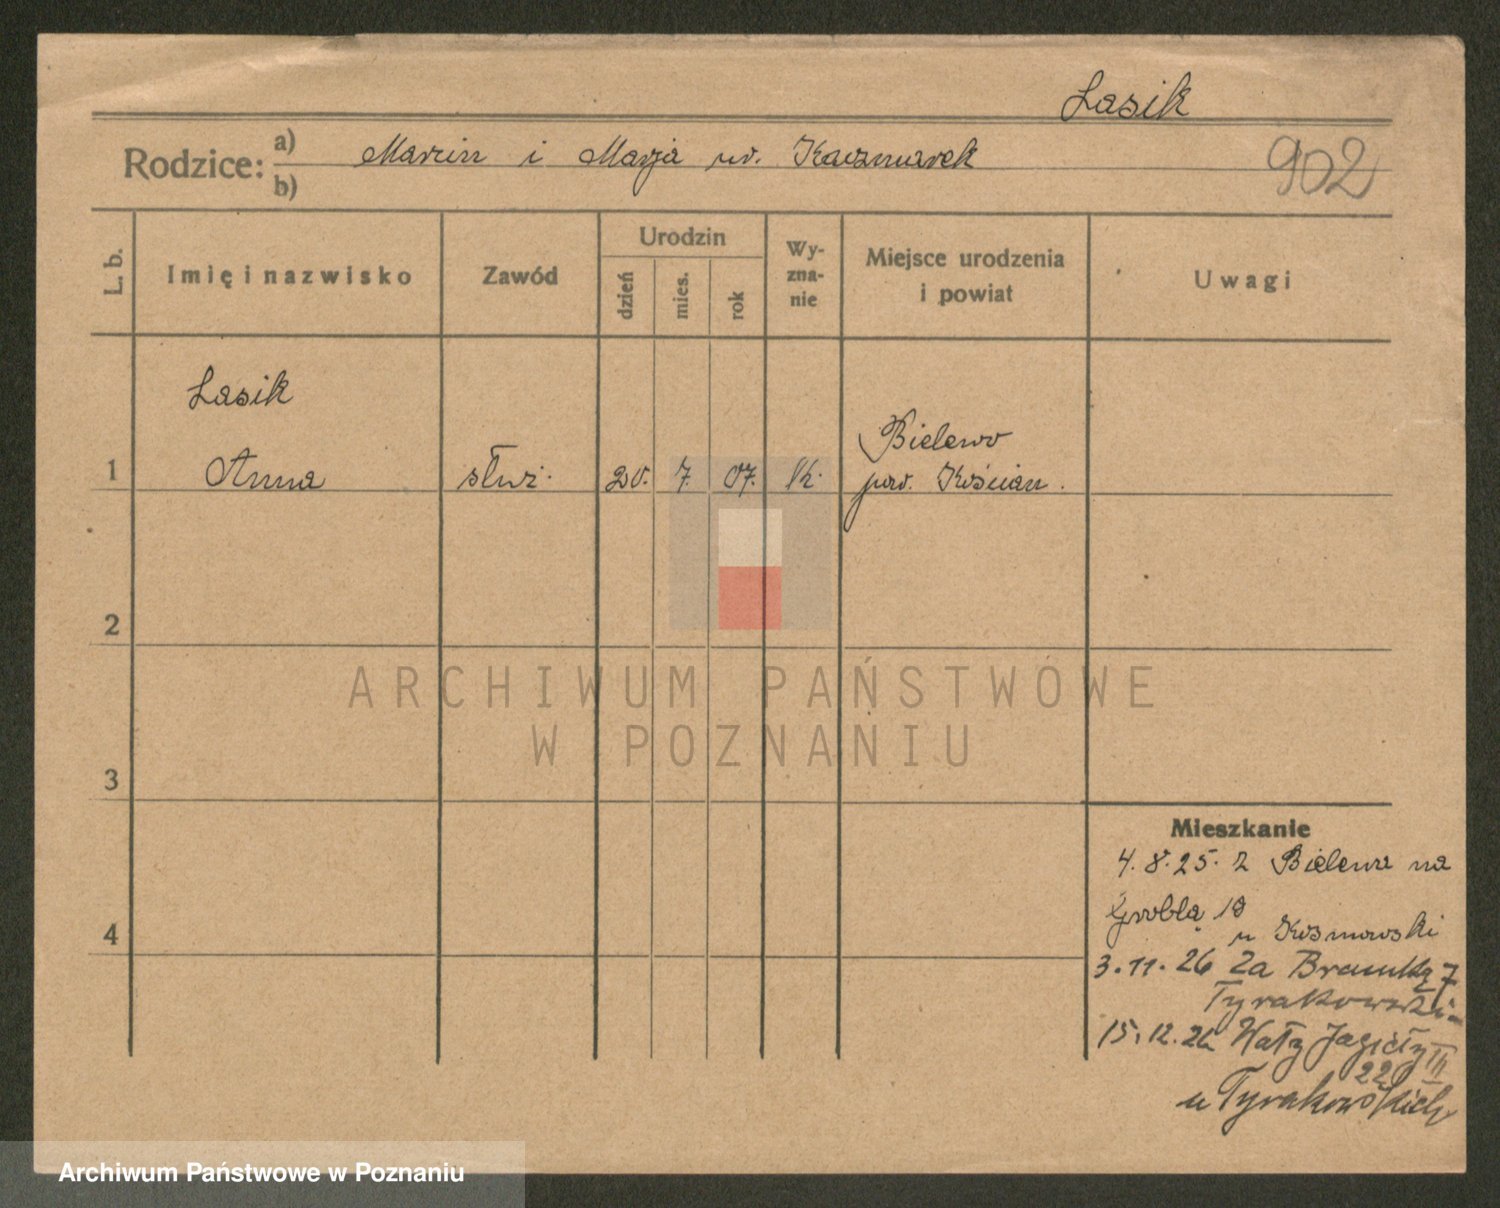 Lasik
Rodzice: a) Marcin i Marja ur. Kaczmarek
b)
902
L. b.
Imię i nazwisko
Zawód
Urodzin
dzień
mies.
rok
Wy-
zna-
nie
Miejsce urodzenia
i powiat
Uwagi
1
Lasik
Anna
służ.
20.
7.
07.
rk.
Bielewo
pow. Kościan.
2
3
4
Mieszkanie
4.8.25. z Bielewa na
Groblą 19
u Kosmowski
3.11.26 Za Bramką 7
Tyrakowski
15.12.26 Wały Jagiełły III
22
u Tyrakowskich
ARCHIWUM PAŃSTWOWE
W POZNANIU
Archiwum Państwowe w Poznaniu